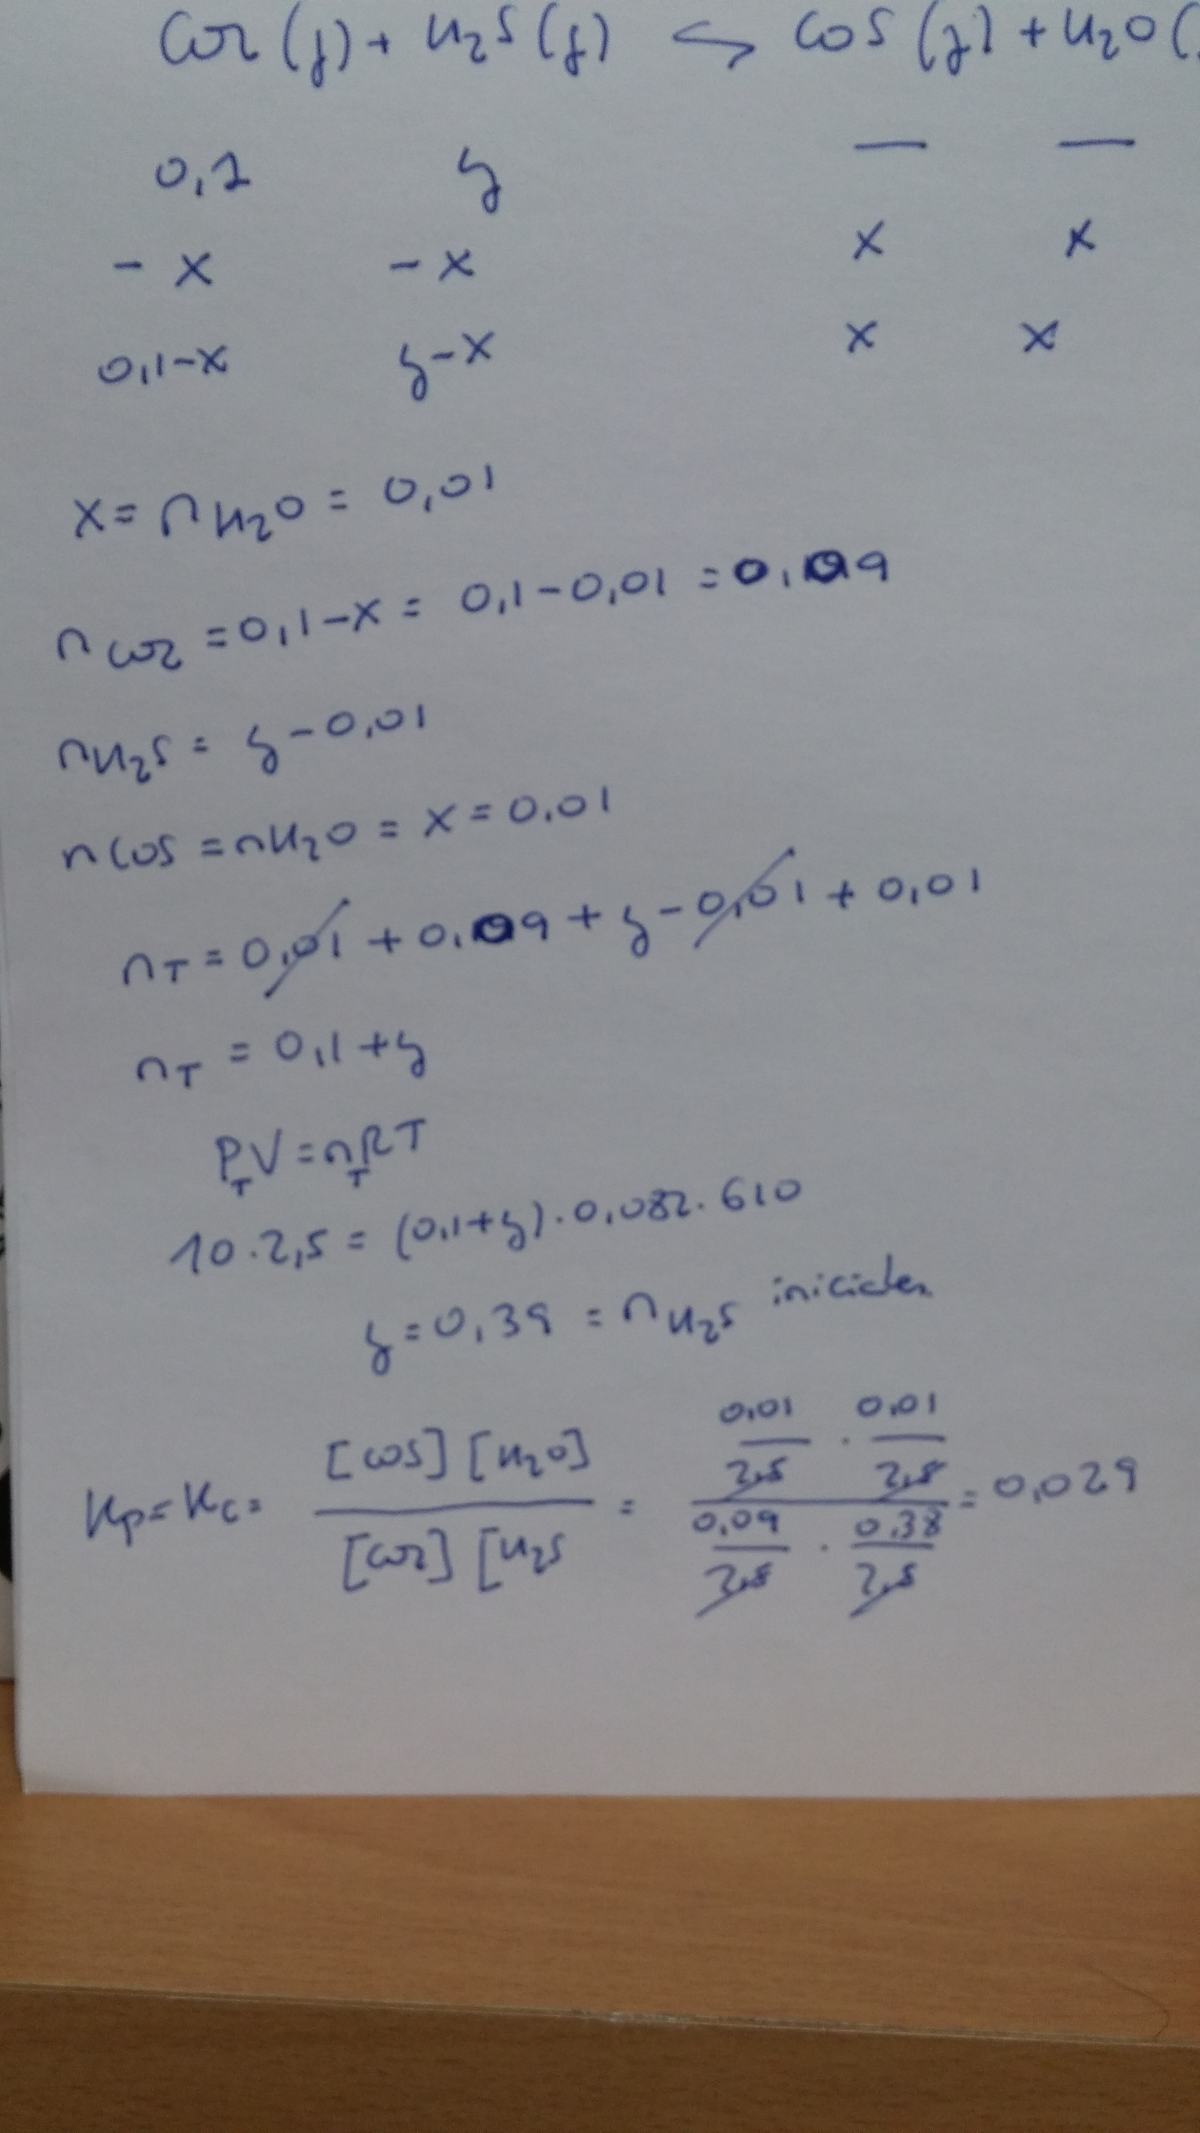 CO2 (g) + H2S (g) ⇆ COS (g) + H2O (
0,1 y — —
- x - x x x
0,1-x y-x x x
x = nH2O = 0,01
nCO2 = 0,1-x = 0,1-0,01 = 0,09
nH2S = y-0,01
nCOS = nH2O = x = 0.01
nT = 0,01 + 0,09 + y - 0,01 + 0,01
nT = 0,1 + y
PTV = nTRT
10 . 2,5 = (0,1+y) . 0,082 . 610
y = 0,39 = nH2S iniciales
Kp = Kc = [COS] [H2O] / [CO2] [H2S = 0,01/2,5 . 0,01/2,5 / 0,09/2,5 . 0,38/2,5 = 0,029